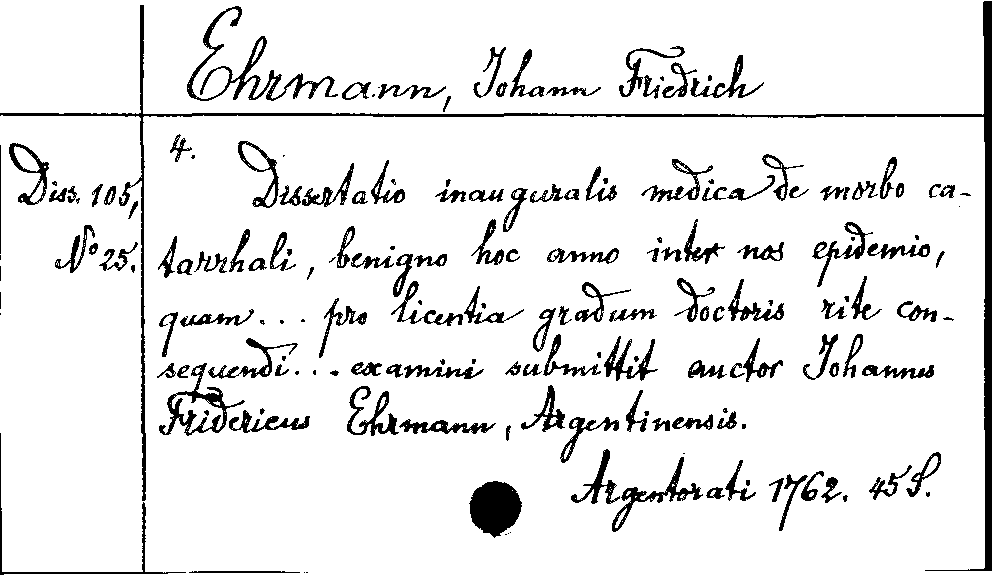 Ehrmann, Johann Friedrich
4.
Diss. 105, Dissertatio inauguralis medica de morbo ca-
No 25. tarrhali, benigno hoc anno inter nos epidemio,
quam... pro licentia gradum doctoris rite con-
sequendi... examini submittit auctor Johannes
Fridericus Ehrmann, Argentinensis.
Argentorati 1762. 45 S.